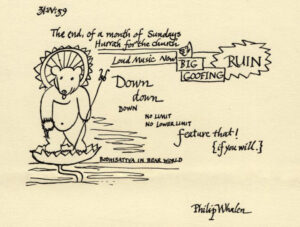 The end, of a month of Sundays
Hurrah for the church
Loud Music Now
BIG
GOOFING
RUIN
Down
down
DOWN
NO LIMIT
NO LOWER LIMIT
feature that!
{if you will.}
BODHISATTVA IN BEAR WORLD
Philip Whalen